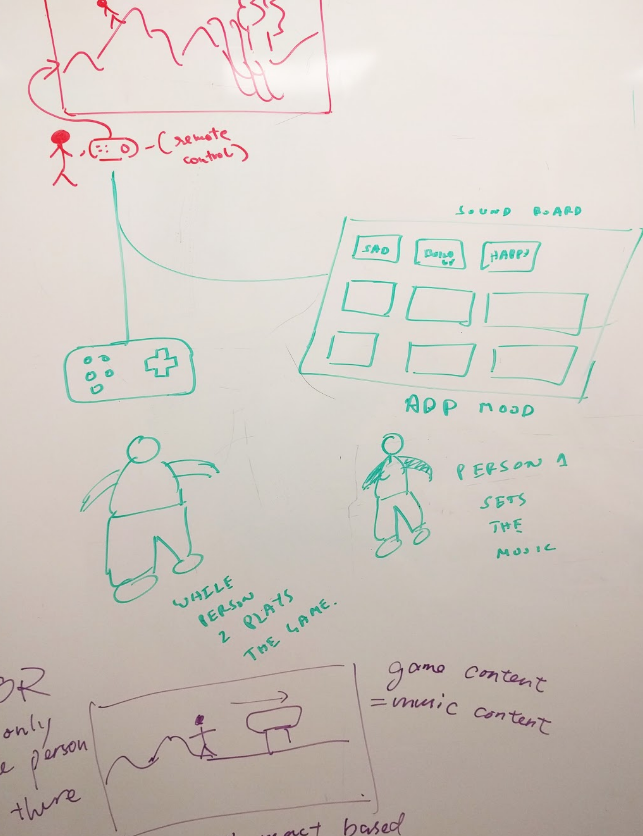 (remote
control)
SOUND BOARD
SAD
HAPPY
ADD MOOD
PERSON 1
SETS
THE
MUSIC
WHILE
PERSON
2 PLAYS
THE GAME.
OR
only
person
there
game content
= music content
based